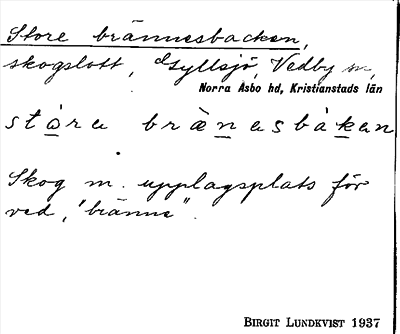 Store brännesbacken,
skogslott, Gyllsjö, Vedby sn,
Norra Åsbo hd, Kristianstads län
stòra brä̀nesbàkan
Skog m. upplagsplats för
ved, "bränne".
BIRGIT LUNDKVIST 1937